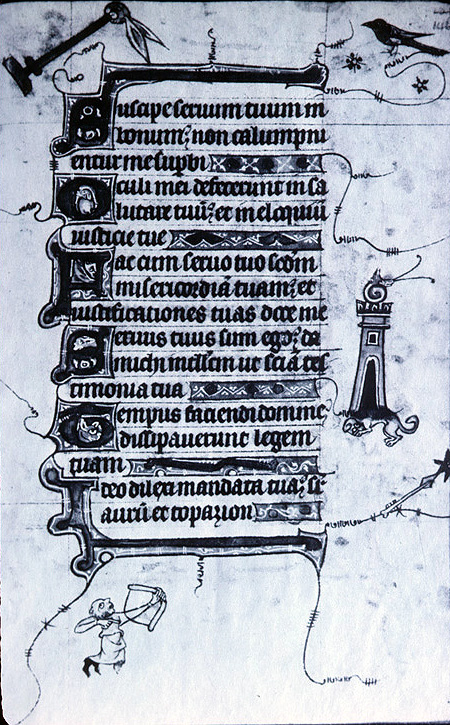 Suscipe seruum tuum in
bonum: non calumpni
entur me supbi
Oculi mei defecerunt in sa
lutare tuū: et in eloquiū
iusticie tue
Fac cum seruo tuo scdm
misericordiā tuam: et
iustificationes tuas doce me
Seruus tuus sum ego: da
michi intellcm ut sciā tes
timonia tua
Tempus faciendi domine
dissipauerunt legem
tuam
Ideo dilexi mandata tua: sr
aurū et topazion